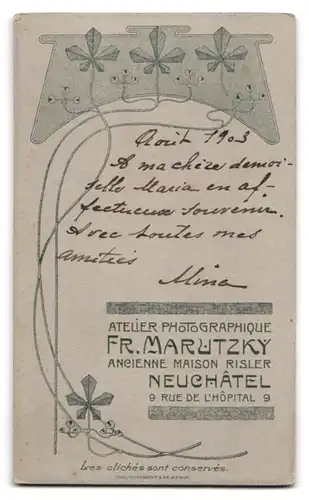 Août 1903
A ma chère demoi-
selle Maria en af-
fectueux souvenir.
Avec toutes mes
amitiés
Mina
ATELIER PHOTOGRAPHIQUE
FR. MARUTZKY
ANCIENNE MAISON RISLER
NEUCHÂTEL
9 RUE DE L'HÔPITAL 9
Les clichés sont conservés.